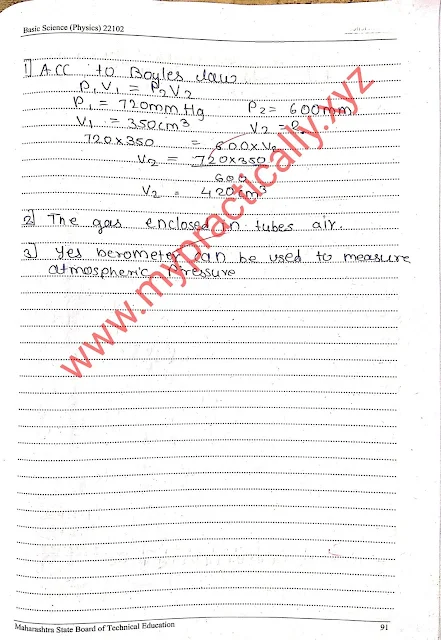 Basic Science (Physics) 22102
1] ACC to Boyles law
P₁V₁ = P₂V₂
P₁ = 720mm Hg P₂ = 600mm
V₁ = 350cm³ V₂ = ?
720x350 = 600xV₂
V₂ = 720x350
600
V₂ = 420cm³
2] The gas enclosed in tubes air.
3] Yes berometer can be used to measure
atmospheric Pressure
www.mypractically.xyz
Maharashtra State Board of Technical Education 91